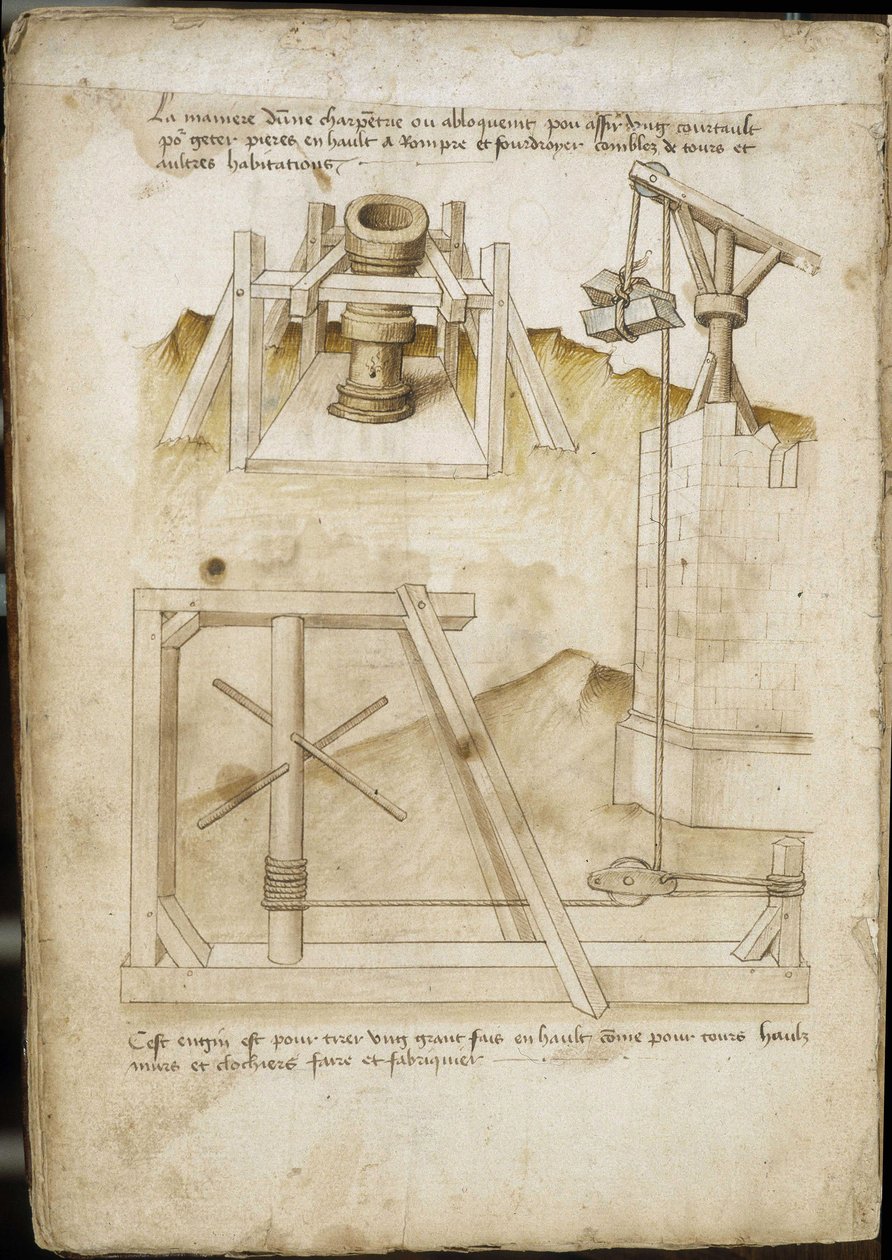 La maniere dune charpētrie ou abloquemt pou assir vng courtault
por geter pieres en hault a Rompre et fourdroyer combles de tours et
aultres habitations
Cest engin est pour tirer vng grant fais en hault cōme pour tours haulz
murs et clochiers faire et fabriquier